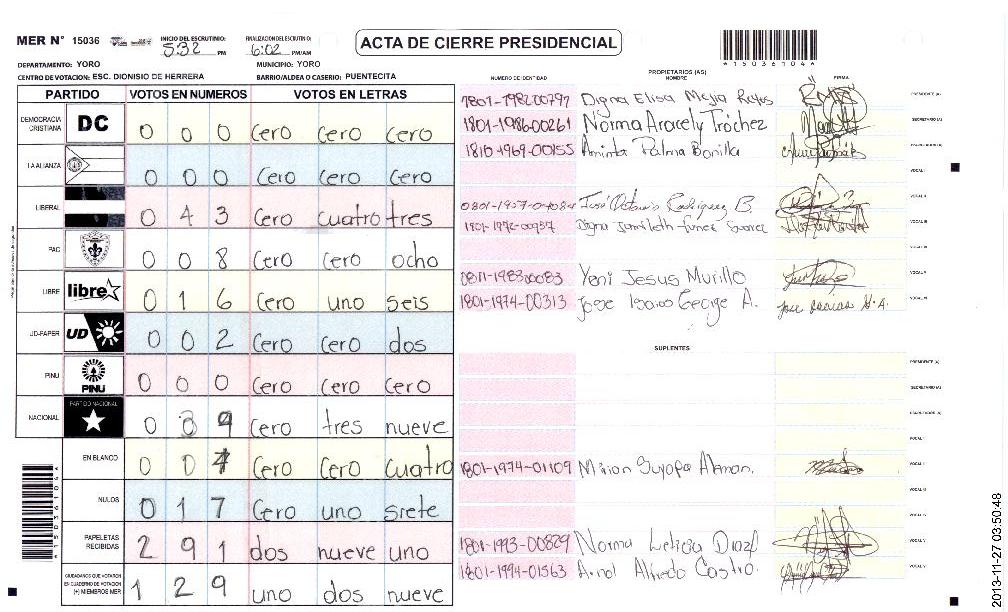 MER N° 15036 INICIO DEL ESCRUTINIO: 5:32 PM FINALIZACION DEL ESCRUTINIO: 6:02 PM/AM
ACTA DE CIERRE PRESIDENCIAL
*15036104*
DEPARTAMENTO: YORO MUNICIPIO: YORO
CENTRO DE VOTACION: ESC. DIONISIO DE HERRERA BARRIO/ALDEA O CASERIO: PUENTECITA
PARTIDO VOTOS EN NUMEROS VOTOS EN LETRAS
DEMOCRACIA CRISTIANA DC 0 0 0 Cero Cero Cero
LA ALIANZA 0 0 0 Cero Cero Cero
LIBERAL 0 4 3 Cero cuatro tres
PAC 0 0 8 Cero Cero ocho
LIBRE libre 0 1 6 Cero uno seis
UD-FAPER UD 0 0 2 Cero Cero dos
PINU PINU 0 0 0 Cero Cero Cero
NACIONAL PARTIDO NACIONAL 0 3 9 Cero tres nueve
EN BLANCO 0 0 4 Cero Cero cuatro
NULOS 0 1 7 Cero uno siete
PAPELETAS RECIBIDAS 2 9 1 dos nueve uno
CIUDADANOS QUE VOTARON EN CUADERNO DE VOTACION (+) MIEMBROS MER 1 2 9 uno dos nueve
PROPIETARIOS (AS)
NUMERO DE IDENTIDAD NOMBRE FIRMA
Digna Elisa Mejia PRESIDENTE (A)
1801-1986-00261 Norma Aracely Tróchez SECRETARIO (A)
1810-1969-00155 Aminta Palma Bonilla
VOCAL I
VOCAL II
VOCAL III
0811-1983-00083 Yeni Jesus Murillo VOCAL V
1801-1974-00313 Jose Isaias George A.
SUPLENTES
PRESIDENTE (A)
SECRETARIO (A)
VOCAL I
1801-1974-01109 VOCAL II
VOCAL III
1801-1993-00829 Norma Leticia
1801-1994-01563 Arnol Alfredo Castro.
2013-11-27 03:50:48